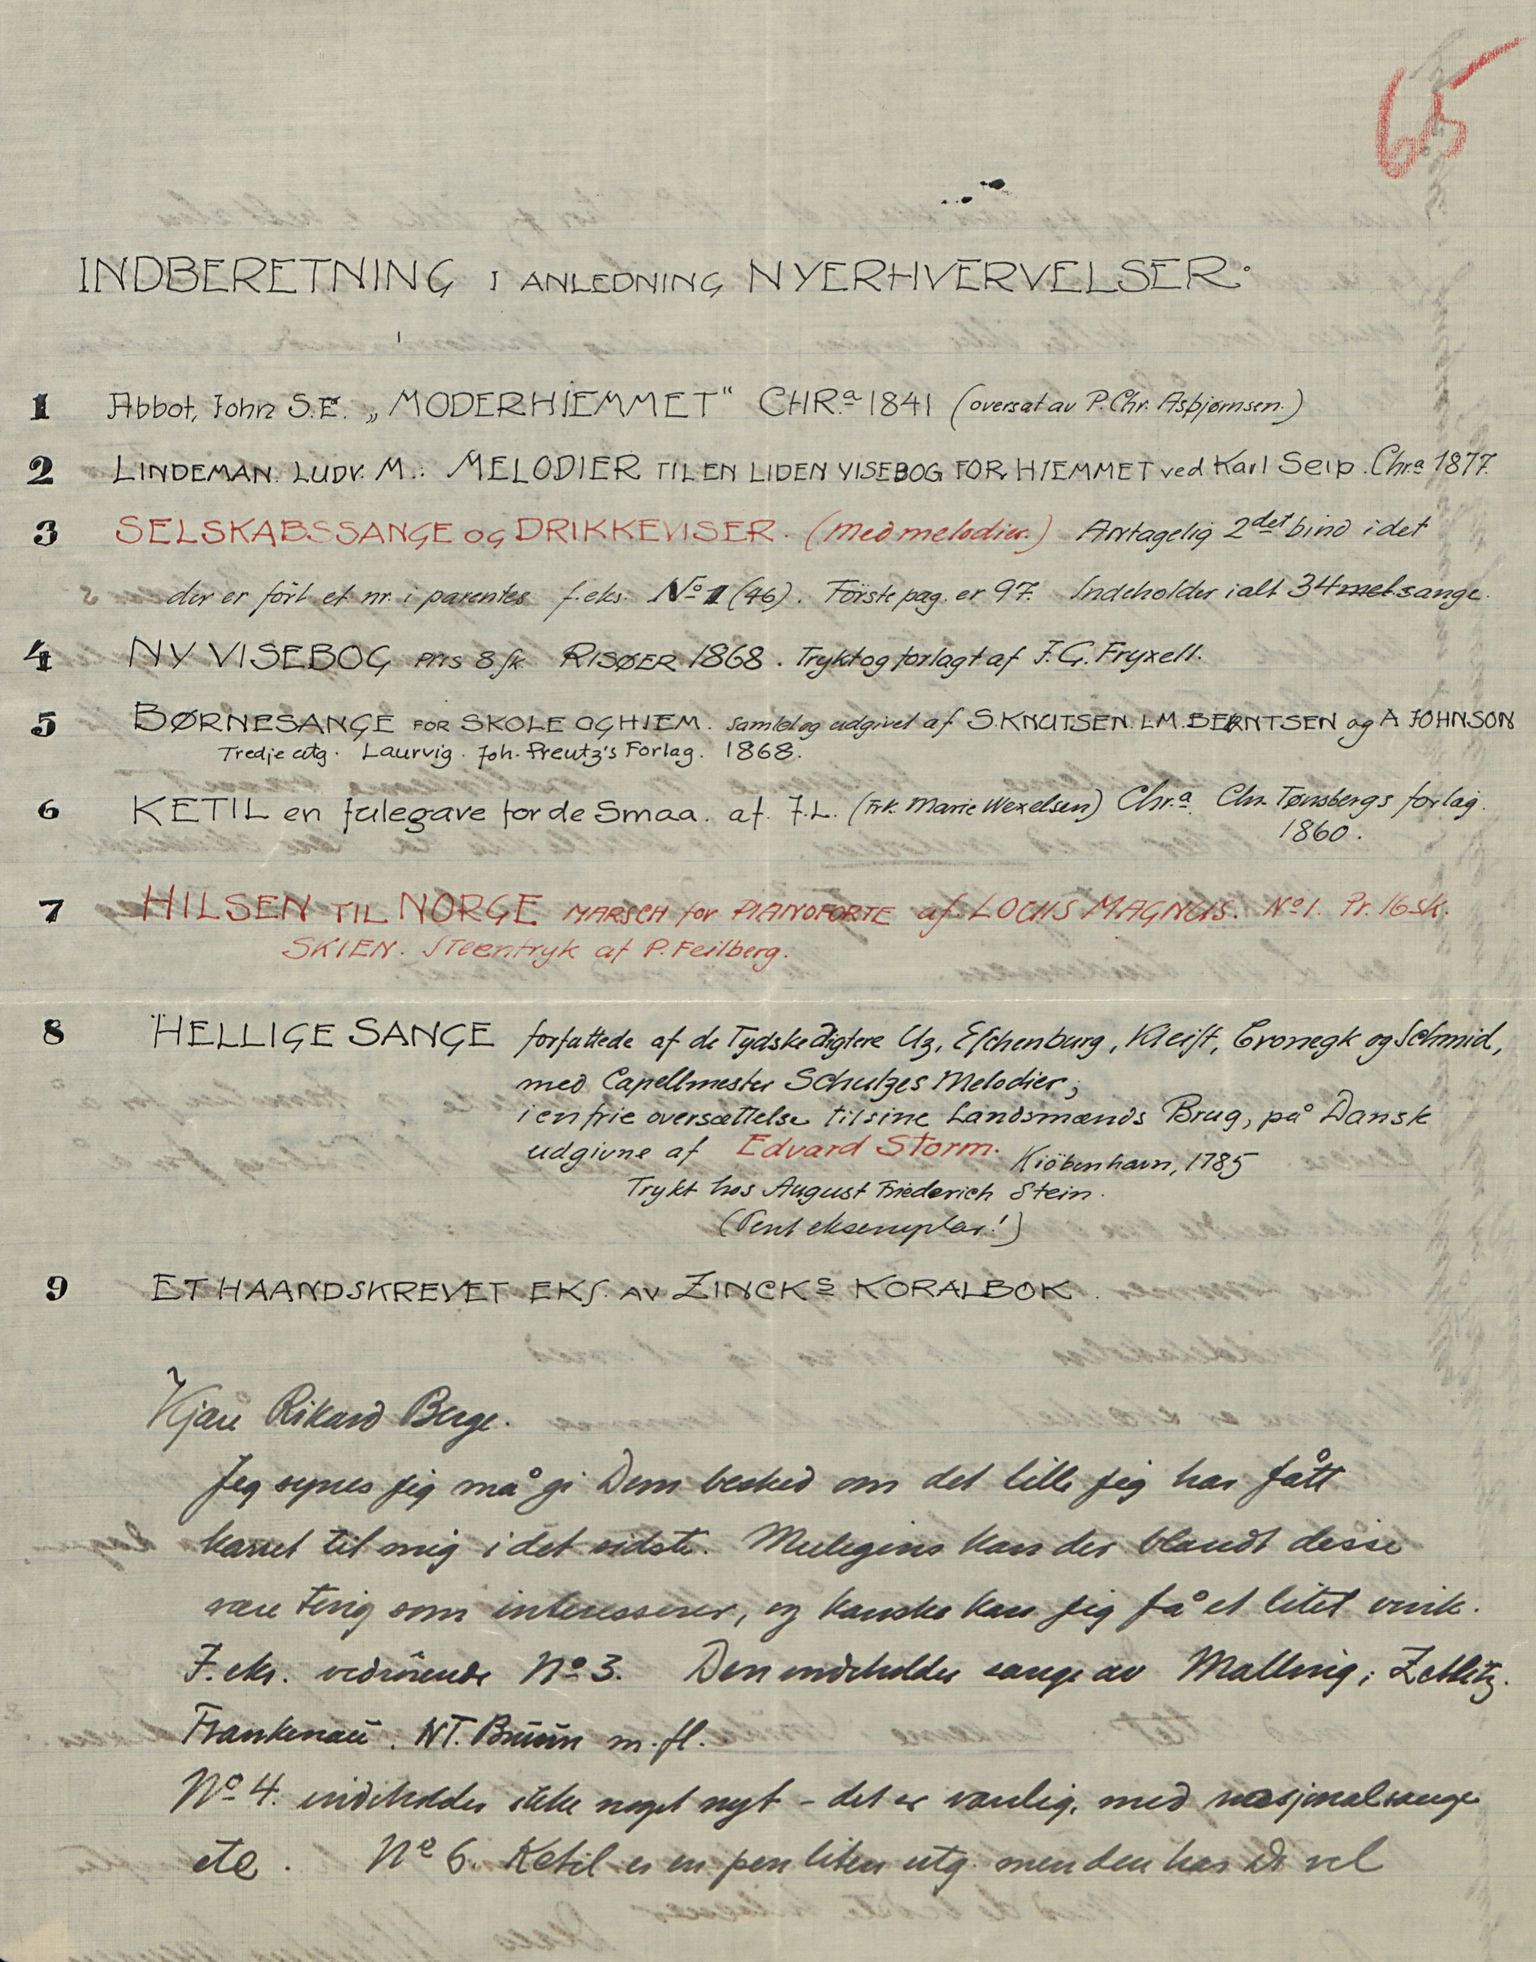 65
INDBERETNING I ANLEDNING NYERHVERVELSER:
1 Abbot, John S.E. „MODERHJEMMET" CHR.a 1841 (oversat av P. Chr. Asbjørnsen.)
2 LINDEMAN. LUDV. M.: MELODIER TIL EN LIDEN VISEBOG FOR HJEMMET ved Karl Seip. Chr.a 1877.
3 SELSKABSSANGE OG DRIKKEVISER. (med melodier.) Antagelig 2det bind i det
der er fört et nr. i parentes f.eks. No 1 (46). Förste pag. er 97. Indeholder ialt 34 mel sange.
4 NY VISEBOG Pris 8 sk. RISØER 1868. Trykt og forlagt af F.G. Fryxell.
5 BØRNESANGE FOR SKOLE OG HJEM. Samlet og udgivet af S. KNUTSEN. L.M. BERNTSEN og A JOHNSON
Tredje utg. Laurvig. Joh. Preutz's Forlag. 1868.
6 KETIL en julegave for de Smaa. af. J.L. (Frk. Marie Wexelsen) Chr.a Chr. Tønsbergs forlag.
1860.
7 HILSEN TIL NORGE MARSCH for PIANOFORTE af LOUIS MAGNUS. No 1. Pr. 16 sk.
SKIEN. Steentryk af P. Feilberg.
8 HELLIGE SANGE forfattede af de Tydske digtere Uz, Eschenburg, Kleist, Cronegk og Schmid,
med Capellmester Schulzes Melodier;
i en frie oversættelse til sine Landsmænds Brug, på Dansk
udgivne af Edvard Storm. Kiöbenhavn, 1785
Trykt hos August Friederich Stein.
(Pent eksemplar!)
9 ET HAANDSKREVET EKS. AV ZINCKs KORALBOK.
Kjære Rikard Berge.
Jeg synes jeg må gi Dem besked om det lille jeg har fått
karret til mig i det sidste. Muligens kan der blandt disse
være ting som interesserer, og kanske kan jeg få et litet vink.
F.eks. vedrörende No 3. Den indeholder sange av Malling; Zetlitz.
Frankenau. NT. Bruun m. fl.
No 4. indeholder ikke noget nyt – det er vanlig, med nasjonalsange
etc. No 6. Ketil er en pen liten utg. men den har De vel